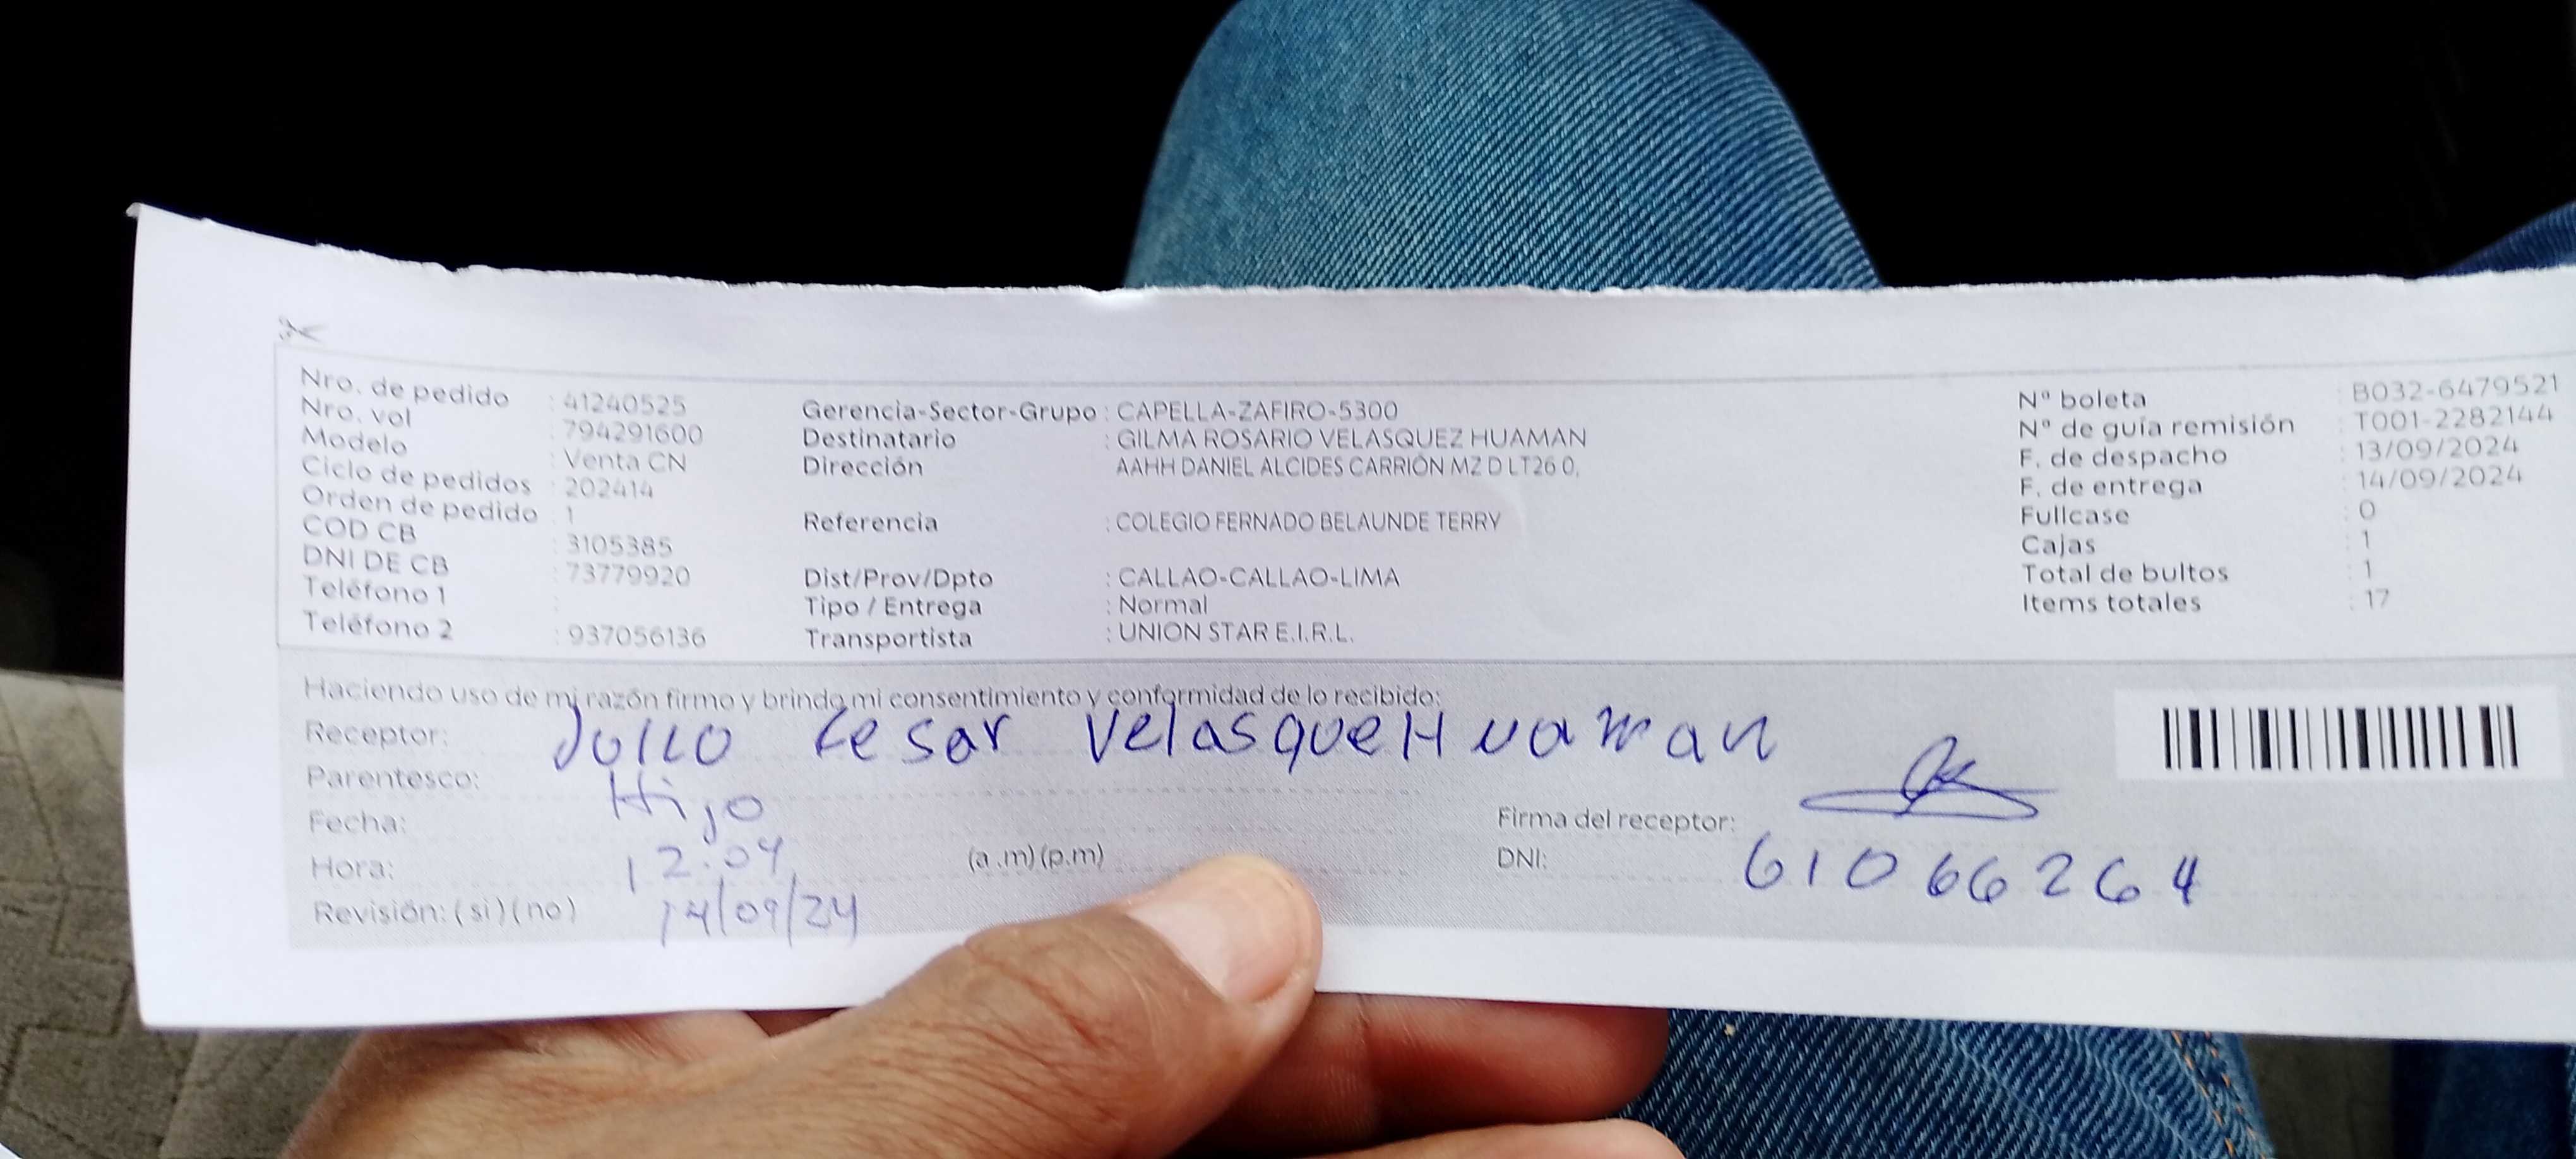 Nro. de pedido : 41240525
Nro. vol : 794291600
Modelo : Venta CN
Ciclo de pedidos : 202414
Orden de pedido : 1
COD CB : 3105385
DNI DE CB : 73779920
Teléfono 1 :
Teléfono 2 : 937056136
Gerencia-Sector-Grupo : CAPELLA-ZAFIRO-5300
Destinatario : GILMA ROSARIO VELASQUEZ HUAMAN
Dirección AAHH DANIEL ALCIDES CARRIÓN MZ D LT26 0,
Referencia : COLEGIO FERNADO BELAUNDE TERRY
Dist/Prov/Dpto : CALLAO-CALLAO-LIMA
Tipo / Entrega : Normal
Transportista : UNION STAR E.I.R.L.
N° boleta : B032-6479521
N° de guía remisión : T001-2282144
F. de despacho : 13/09/2024
F. de entrega : 14/09/2024
Fullcase : 0
Cajas : 1
Total de bultos : 1
Items totales : 17
Haciendo uso de mi razón firmo y brindo mi consentimiento y conformidad de lo recibido:
Receptor: Julio Cesar Velasque Huaman
Parentesco: Hijo
Fecha:
Hora: 12:04 (a.m)(p.m)
Revisión: (si)(no) 14/09/24
Firma del receptor:
DNI: 61066264